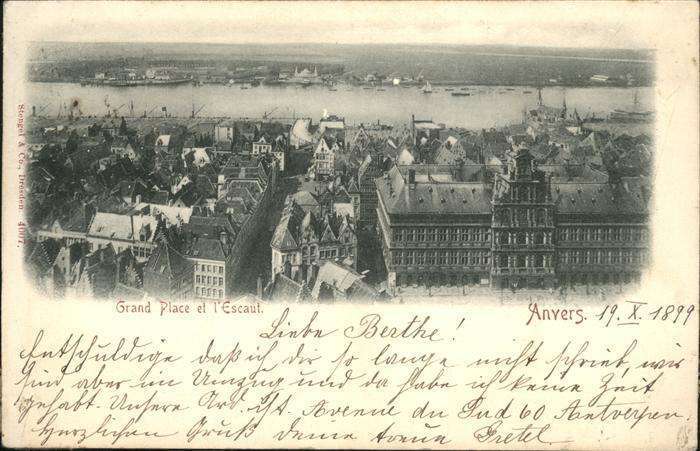 Stengel & Co., Dresden 4007.
Grand Place et l'Escaut.
Anvers. 19. X. 1899
Liebe Berthe!
Entschuldige daß ich der so lange nicht schrieb, wir
sind aber im Umzug und da habe ich keine Zeit
gehabt. Unsere Adr. ist. Avenue du Sud 60 Antwerpen.
Herzlichen Gruß deine treue Gretel.